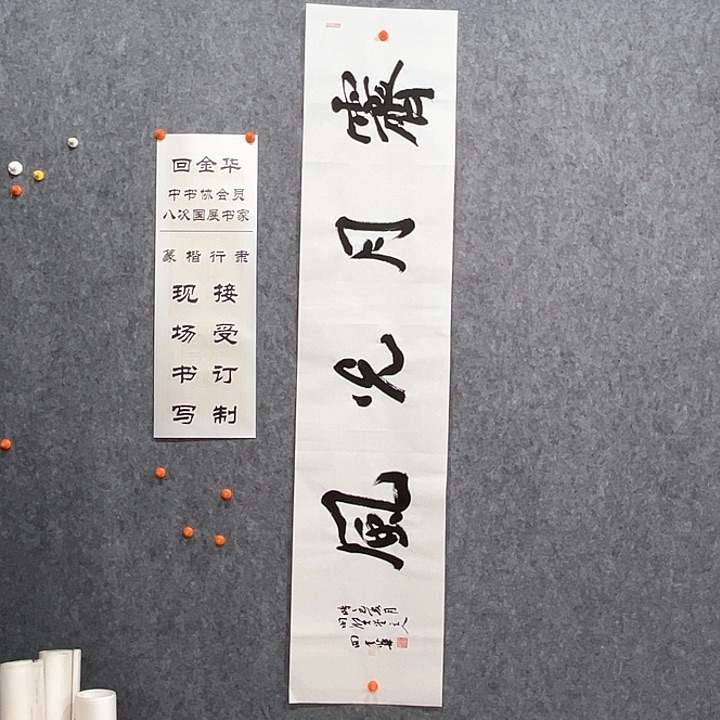 回金华
中书协会员
八次国展书家
篆楷行隶
现场书写
接受订制
霽月光風